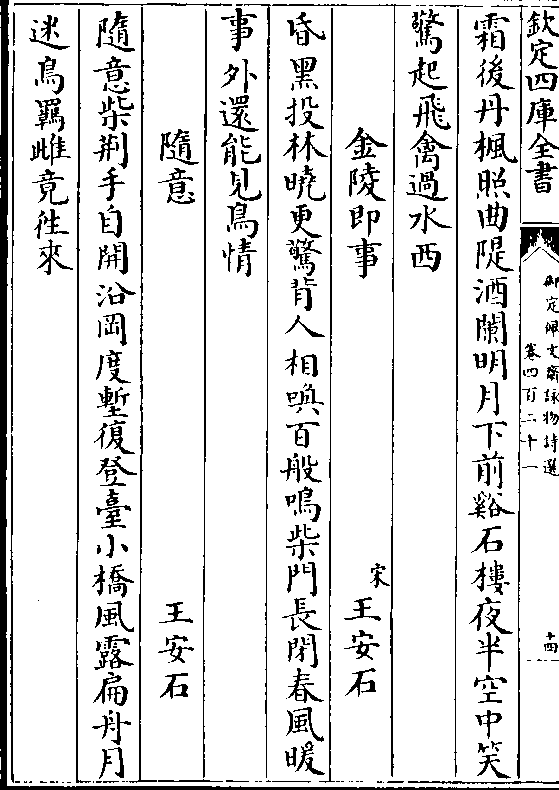 欽定四庫全書
御定佩文齋詠物詩選
卷四百二十一
十四
霜後丹楓照曲隄酒闌明月下前谿石樓夜半空中笑
驚起飛禽過水西
金陵即事
宋王安石
昏黑投林曉更驚背人相喚百般鳴柴門長閉春風暖
事外還能見鳥情
隨意
王安石
隨意柴荆手自開沿岡度塹復登臺小橋風露扁舟月
迷鳥羈雌竟徃來